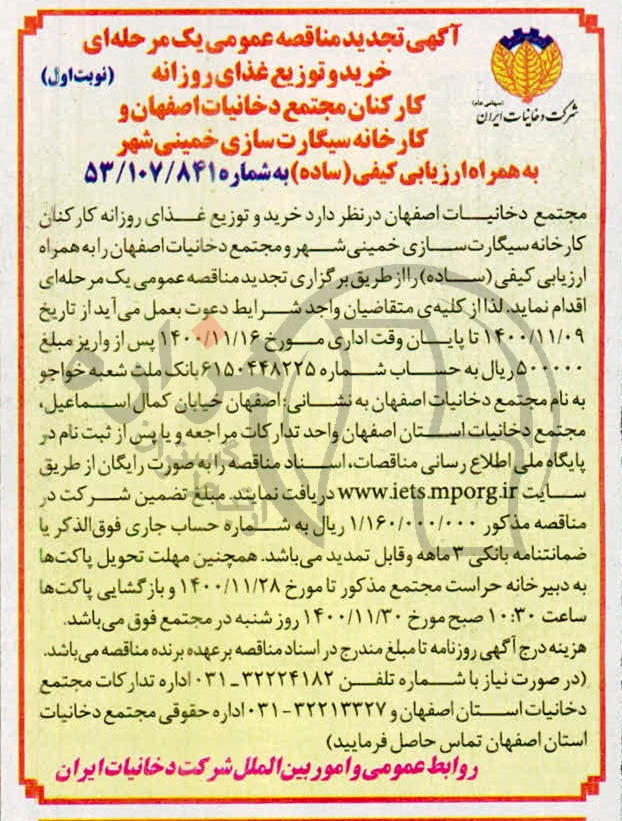 آگهی تجدید مناقصه عمومی یک مرحله‌ای
خرید و توزیع غذای روزانه
(نوبت اول)
کارکنان مجتمع دخانیات اصفهان و
کارخانه سیگارت سازی خمینی شهر
به همراه ارزیابی کیفی (ساده) به شماره ۵۳/۱۰۷/۸۴۱
(سهامی عام)
شرکت دخانیات ایران
مجتمع دخانیات اصفهان در نظر دارد خرید و توزیع غذای روزانه کارکنان
کارخانه سیگارت سازی خمینی شهر و مجتمع دخانیات اصفهان را به همراه
ارزیابی کیفی (ساده) رااز طریق برگزاری تجدید مناقصه عمومی یک مرحله‌ای
اقدام نماید. لذا از کلیه‌ی متقاضیان واجد شرایط دعوت بعمل می‌آید از تاریخ
۱۴۰۰/۱۱/۰۹ تا پایان وقت اداری مورخ ۱۴۰۰/۱۱/۱۶ پس از واریز مبلغ
۵۰۰۰۰۰ ریال به حساب شماره ۶۱۵۰۴۴۸۲۲۵ بانک ملت شعبه خواجو
به نام مجتمع دخانیات اصفهان به نشانی: اصفهان خیابان کمال اسماعیل،
مجتمع دخانیات استان اصفهان واحد تدارکات مراجعه و یا پس از ثبت نام در
پایگاه ملی اطلاع رسانی مناقصات، اسناد مناقصه را به صورت رایگان از طریق
سایت www.iets.mporg.ir دریافت نمایند. مبلغ تضمین شرکت در
مناقصه مذکور ۱/۱۶۰/۰۰۰/۰۰۰ ریال به شماره حساب جاری فوق‌الذکر یا
ضمانتنامه بانکی ۳ ماهه و قابل تمدید می‌باشد. همچنین مهلت تحویل پاکت‌ها
به دبیرخانه حراست مجتمع مذکور تا مورخ ۱۴۰۰/۱۱/۲۸ و بازگشایی پاکت‌ها
ساعت ۱۰:۳۰ صبح مورخ ۱۴۰۰/۱۱/۳۰ روز شنبه در مجتمع فوق می‌باشد.
هزینه درج آگهی روزنامه تا مبلغ مندرج در اسناد مناقصه بر عهده برنده مناقصه می‌باشد.
(در صورت نیاز با شماره تلفن ۳۲۲۲۴۱۸۲-۰۳۱ اداره تدارکات مجتمع
دخانیات استان اصفهان و ۳۲۲۱۳۳۲۷-۰۳۱ اداره حقوقی مجتمع دخانیات
استان اصفهان تماس حاصل فرمایید)
روابط عمومی و امور بین الملل شرکت دخانیات ایران